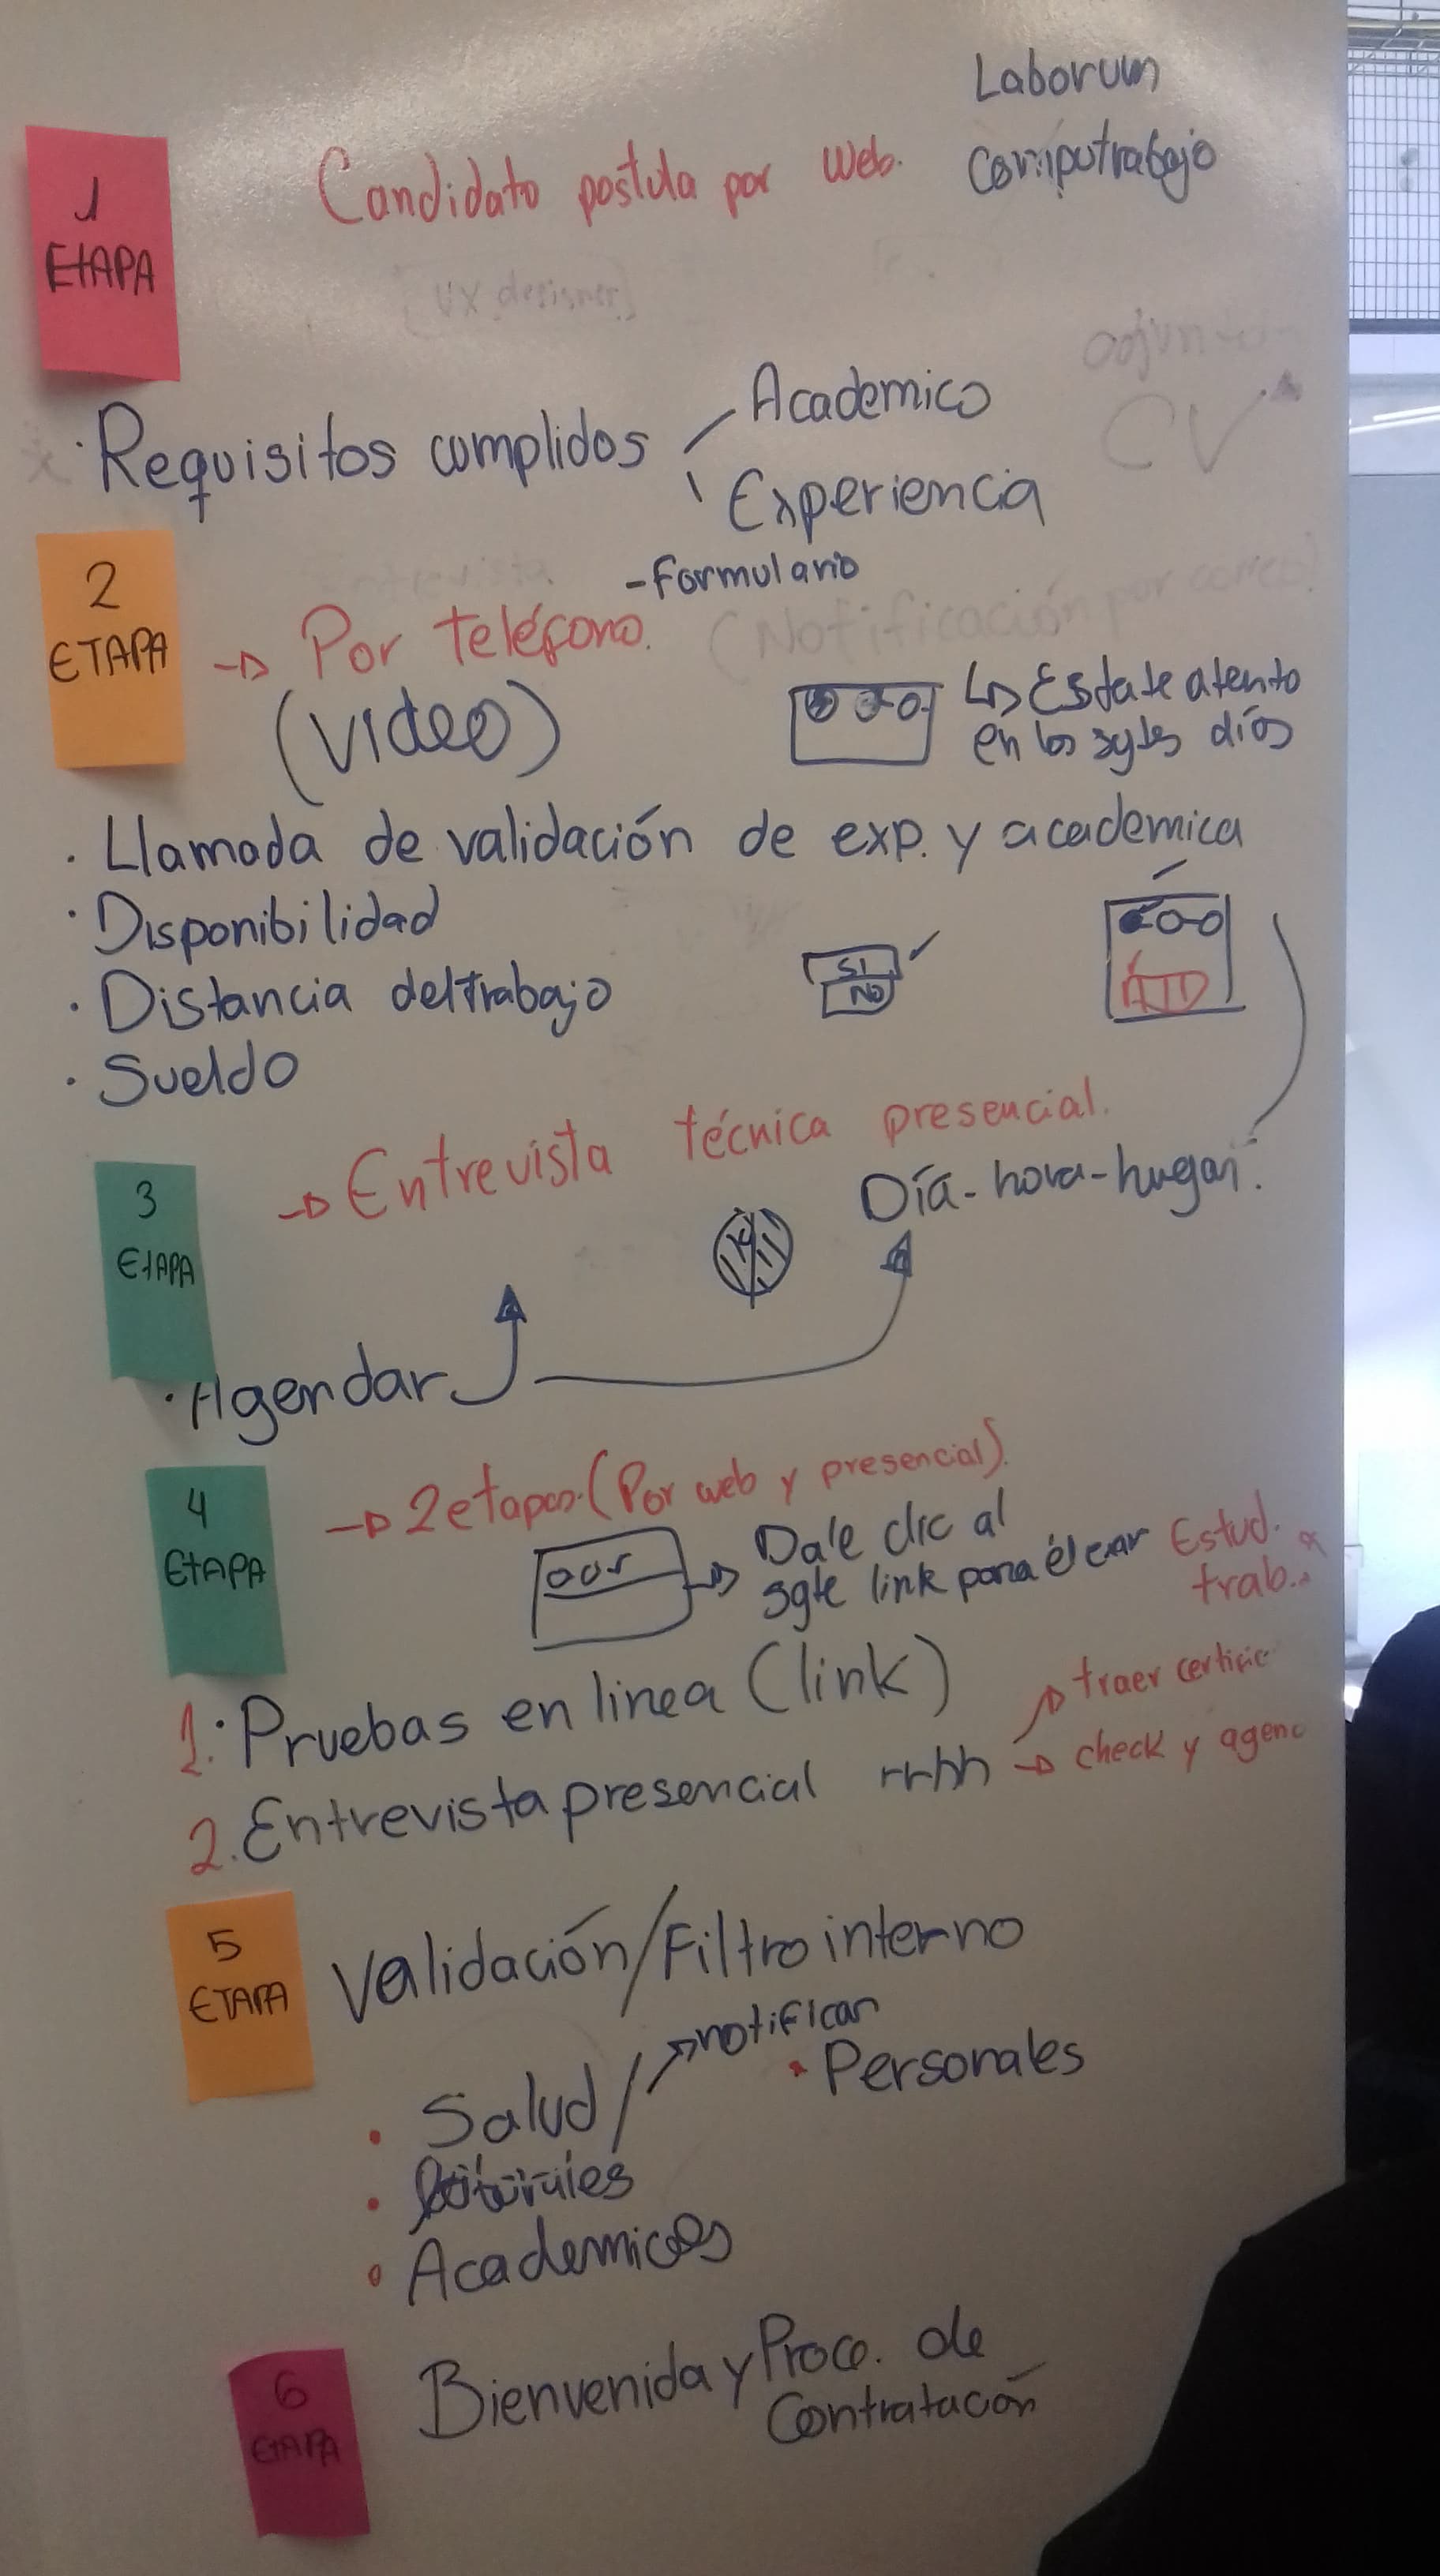 Laborum
1
ETAPA
Candidato postula por web. Computrabajo
[UX designer]
adjunto
CV
· Requisitos cumplidos
Academico
Experiencia
- Formulario
2
ETAPA
Por teléfono.
(Notificación por correo)
(video)
Estate atento
en los sgtes días
· Llamada de validación de exp. y academica
· Disponibilidad
SI
NO
· Distancia del trabajo
· Sueldo
3
ETAPA
Entrevista técnica presencial.
Día - hora - lugar.
· Agendar
4
ETAPA
2 etapas. (Por web y presencial).
Dale clic al
sgte link para
Estud.
trab.
1. · Pruebas en linea (link)
traer certific
2. Entrevista presencial rrhh
check y agen
5
ETAPA
Validación / Filtro interno
notificar
· Salud /
· Personales
· Academicos
6
ETAPA
Bienvenida y Proce. de
Contratación